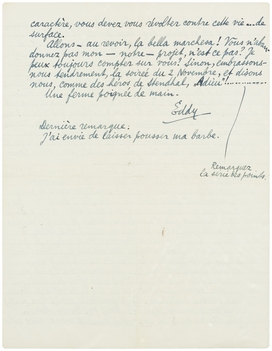 caractère, vous devez vous révolter contre cette vie... de
surface.
Allons - au revoir, la bella marchesa! Vous n'aban-
donnez pas mon - notre - projet, n'est ce pas? Je
peux toujours compter sur vous? Sinon, embrassons-
nous tendrement, la soirée du 2 Novembre, et disons
nous, comme des héros de Stendhal, Adieu!..............
Une ferme poignée de main.
Eddy
Dernière remarque:
J'ai envie de laisser pousser ma barbe.
Remarquez
la série des points.